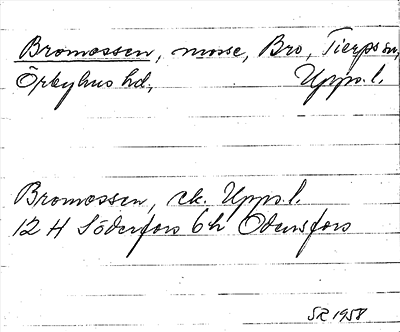 Bromossen, mosse, Bro, Tierps sn,
Örbyhus hd, Upps.l.
Bromossen, ek. Upps.l.
12 H Söderfors 6h Odensfors
SR 1958